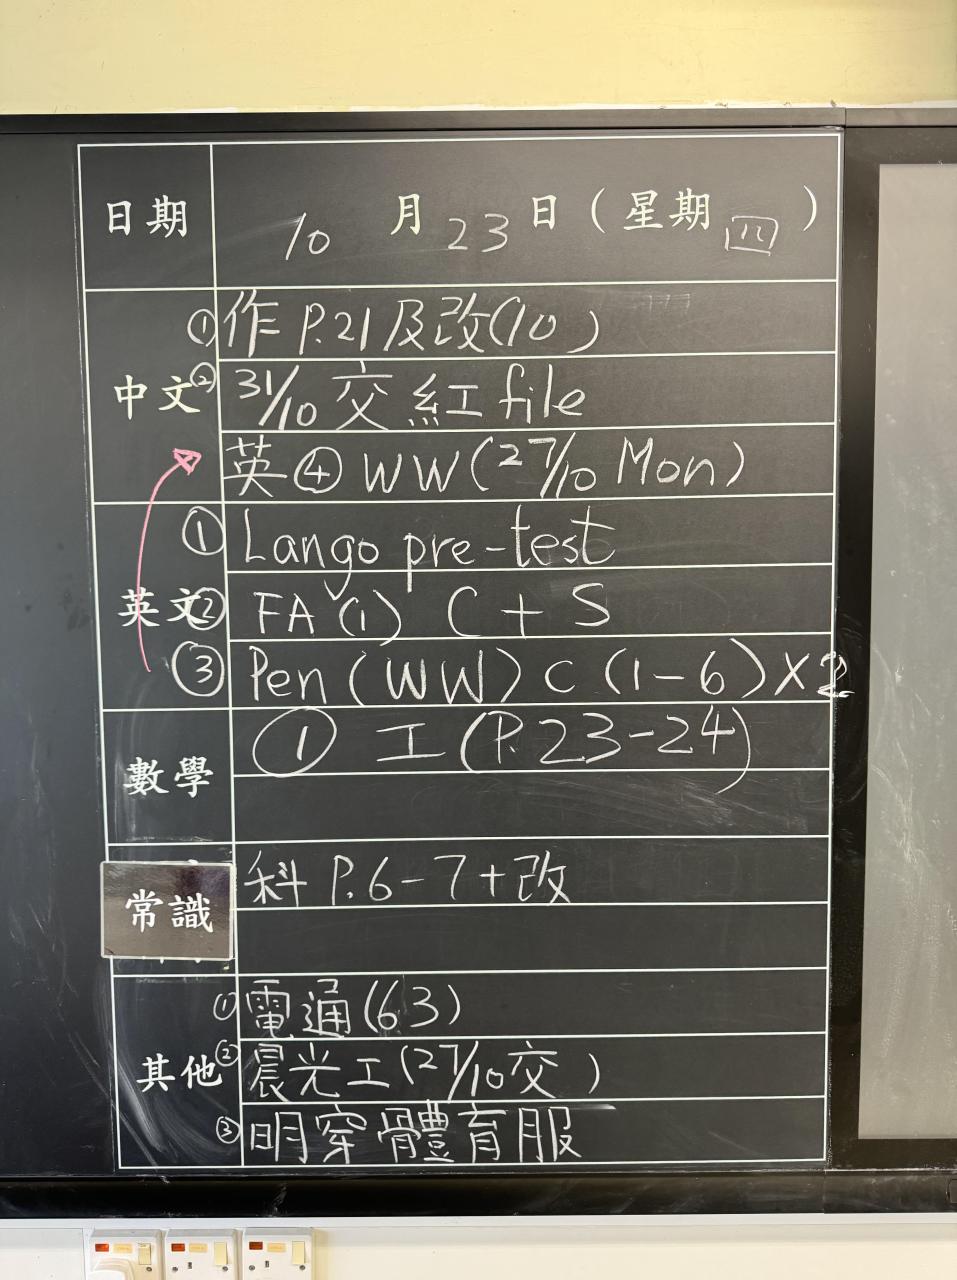 日期 10月23日(星期四)
中文
① 作 P.21及改(10)
② 31/10 交 紅 file
英④ WW (27/10 Mon)
英文
① Lango pre-test
② FA (1) C + S
③ Pen (WW) C (1-6) X2
數學
① 工 (P.23-24)
常識
科 P.6-7+改
其他
① 電通(63)
② 晨光工(27/10交)
③ 明穿體育服